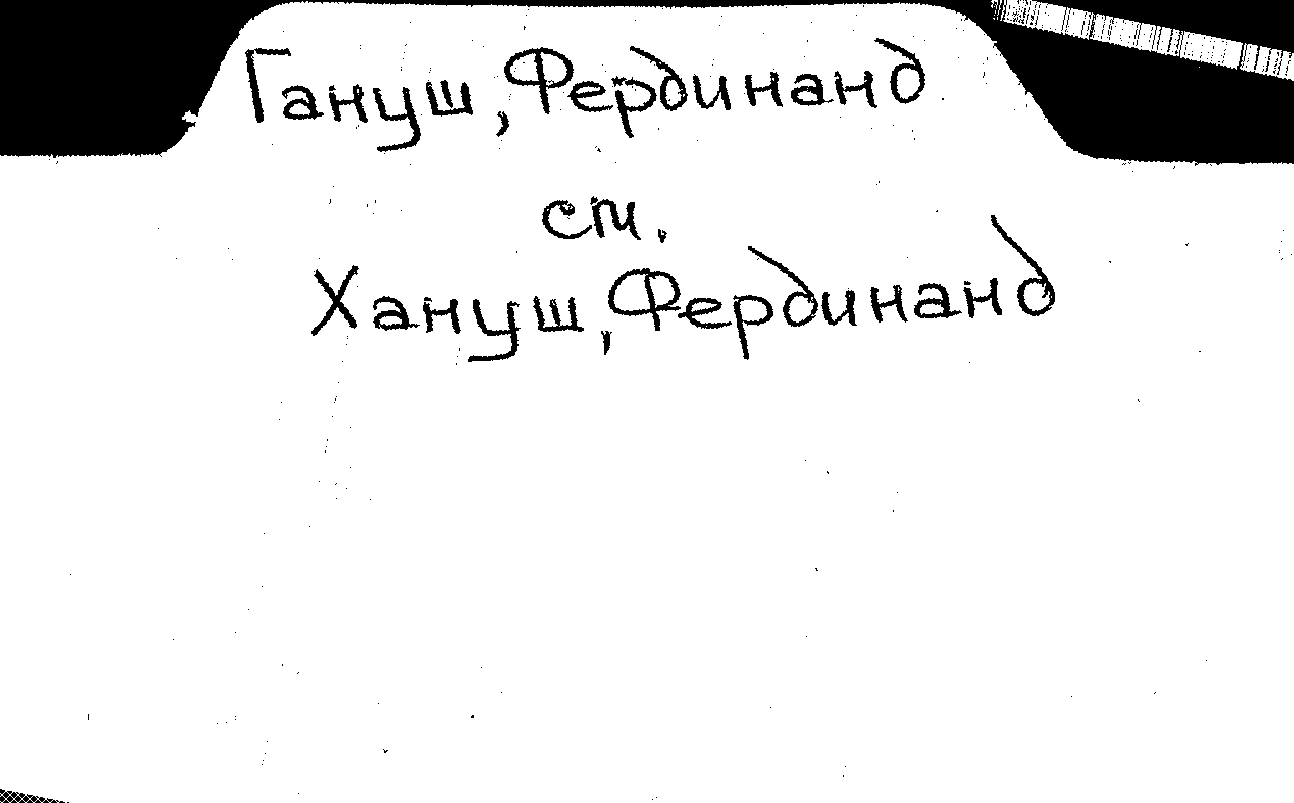 Гануш, Фердинанд
см.
Хануш, Фердинанд